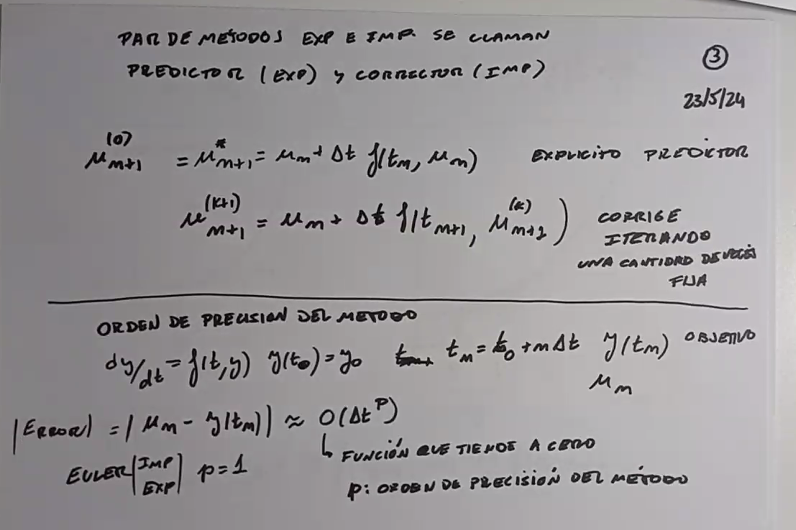 PAR DE METODOS EXP E IMP. SE LLAMAN
PREDICTOR (EXP) Y CORRECTOR (IMP)
3
23/5/24
u_{m+1}^{(0)} = u^*_{m+1} = u_m + Δt f(t_m, u_m) EXPLICITO PREDICTOR
u_{m+1}^{(k+1)} = u_m + Δt f(t_{m+1}, u_{m+1}^{(k)}) CORRIGE
ITERANDO
UNA CANTIDAD DE VECES
FIJA
ORDEN DE PRECISION DEL METODO
dy/dt = f(t,y) y(t_0) = y_0 t_m = t_0 + mΔt y(t_m) OBJETIVO
u_m
|ERROR| = |u_m - y(t_m)| ≈ O(Δt^p)
↳ FUNCIÓN QUE TIENDE A CERO
EULER |IMP EXP| p=1
p: ORDEN DE PRECISIÓN DEL MÉTODO